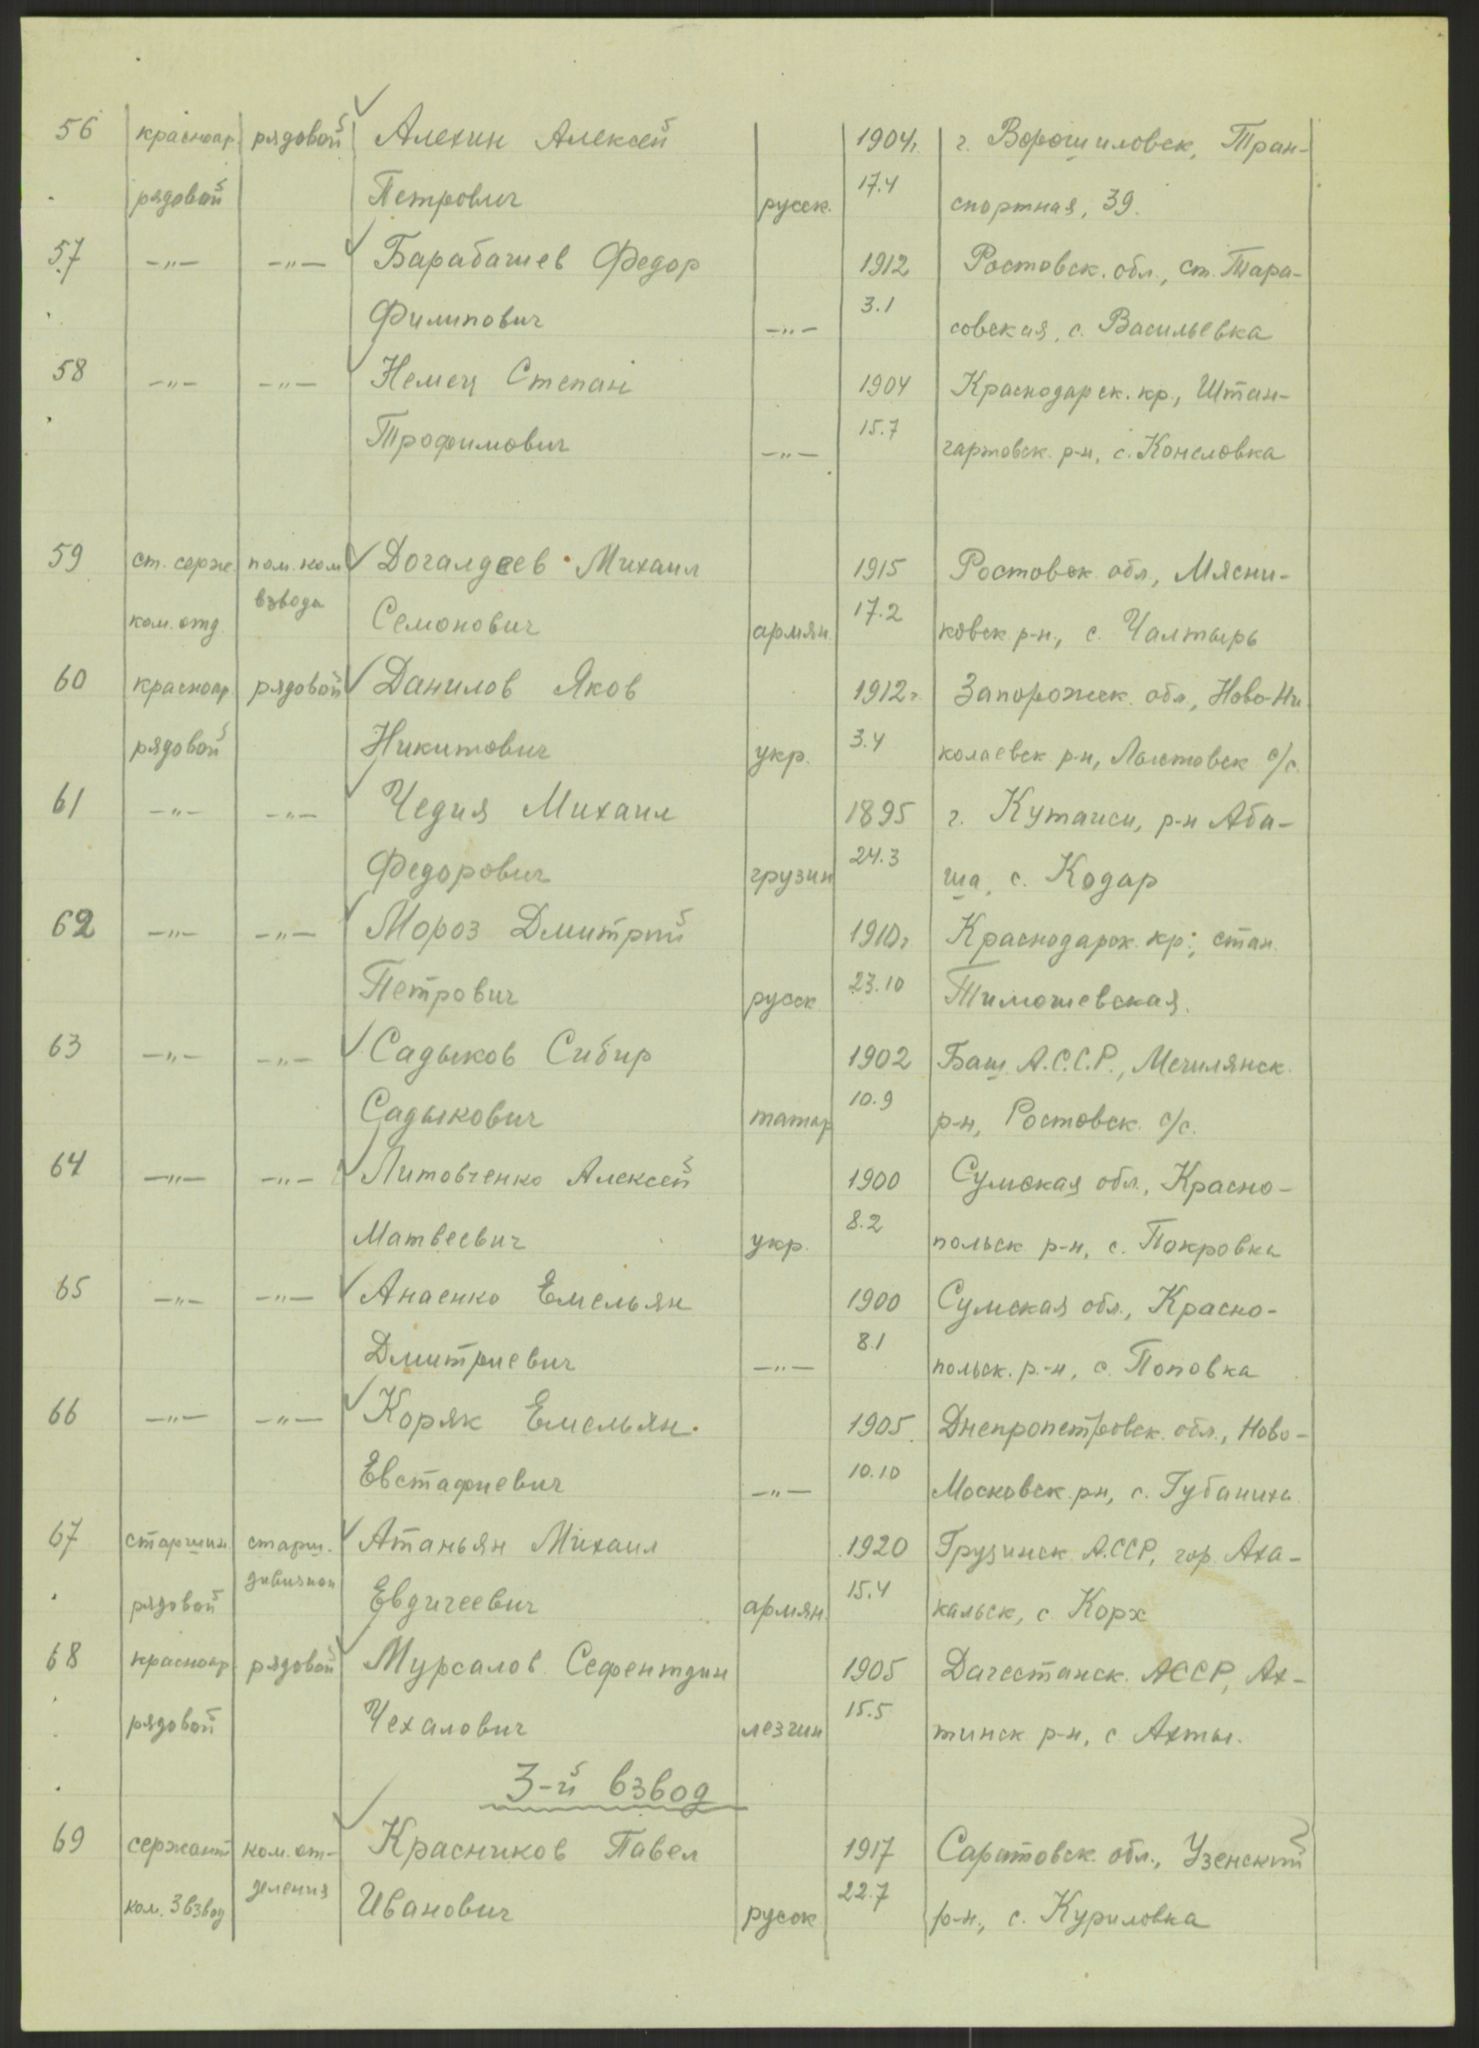 56 красноар. рядовой Алехин Алексей 1904г. г. Ворошиловск, Тран-
рядовой Петрович русск. 17.4 спортная, 39.
57 —„— —„— Барабашев Федор 1912 Ростовск. обл., ст. Тара-
Филипович —„— 3.1 совская, с. Васильевка
58 —„— —„— Немец Степан 1904 Краснодарск. кр., Штан-
Трофимович —„— 15.7 гартовск. р-н, с. Конеловка
59 ст. серж. пом. ком. Догалдеев Михаил 1915 Ростовск обл., Мясни-
ком. отд. взвода Семонович армян. 17.2 ковск р-н, с. Чалтырь
60 красноар. рядовой Данилов Яков 1912г. Запорожск. обл., Ново-Ни
рядовой Никитович укр. 3.4 колаевск р-н, с/с.
61 —„— —„— Чедия Михаил 1895 г. Кутаиси, р-н Аба-
Федорович грузин 24.3 ша, с. Кодар
62 —„— —„— Мороз Дмитрий 1910г Краснодарск. кр., стан.
Петрович русск 23.10 Тимошевская.
63 —„— —„— Садыков Сибир 1902 Баш. А.С.С.Р., Мечилянск.
Садыкович татар 10.9 р-н, Ростовск. с/с.
64 —„— —„— Литовченко Алексей 1900 Сумская обл., Красно-
Матвеевич укр. 8.2 польск р-н, с. Покровка
65 —„— —„— Анаенко Емельян 1900 Сумская обл., Красно-
Дмитриевич —„— 8.1 польск. р-н, с. Поповка
66 —„— —„— Коряк Емельян 1905. Днепропетровск. обл., Ново-
Евстафиевич —„— 10.10 Московск. р-н, с. Губаниха
67 старшин. старш. Атаньян Михаил 1920 Грузинск АССР, гор. Аха-
рядовой дивизион Евдигеевич армян. 15.4 кальск, с. Корх
68 красноар. рядовой Мурсалов Сефентдин 1905 Дагестанск. АССР, Ах-
рядовой Чехалович лезгин 15.5 тинск р-н, с Ахты.
3-й взвод
69 сержант ком. от- Красников Павел 1917 Саратовск. обл., Узенский
ком. 3 взвод деления Иванович русск 22.7 р-н., с. Куриловка